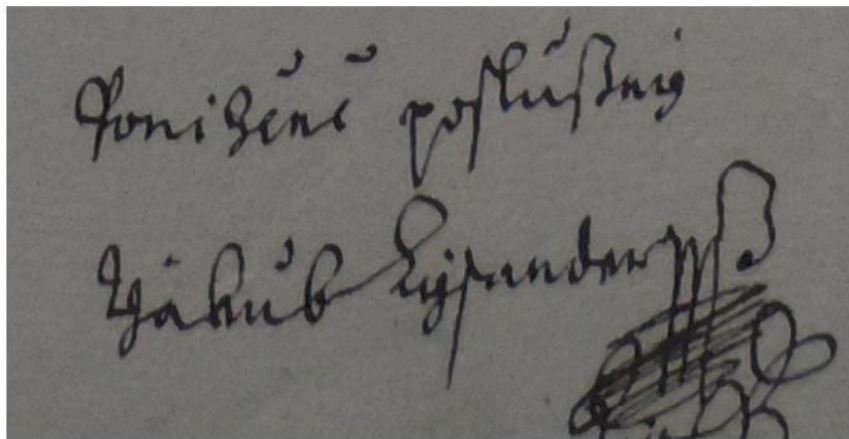 Ponížený poslušný
Jakub Lysander